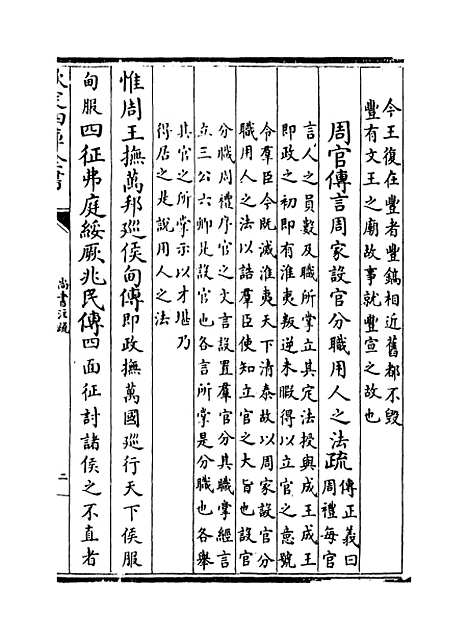 今王復在豐者豐鎬相近舊都不毀
豐有文王之廟故事就豐宣之故也
周官傳言周家設官分職用人之法疏
傳正義曰
周禮每官
言人之員數及職所掌立其定法授與成王成王
即政之初即有淮夷叛逆未暇得以立官之意號
令羣臣今既滅淮夷天下清泰故以周家設官分
職用人之法以誥羣臣使知立官之大旨也設官
分職周禮序官之文言設置羣官分其職掌經言
立三公六卿是設官也各言所掌是分職也各舉
其官之所掌示以才堪乃
得居之是說用人之法
惟周王撫萬邦廵侯甸傳即政撫萬國廵行天下侯服
甸服四征弗庭綏厥兆民傳四面征討諸侯之不直者
欽定四庫全書
尚書注疏
二